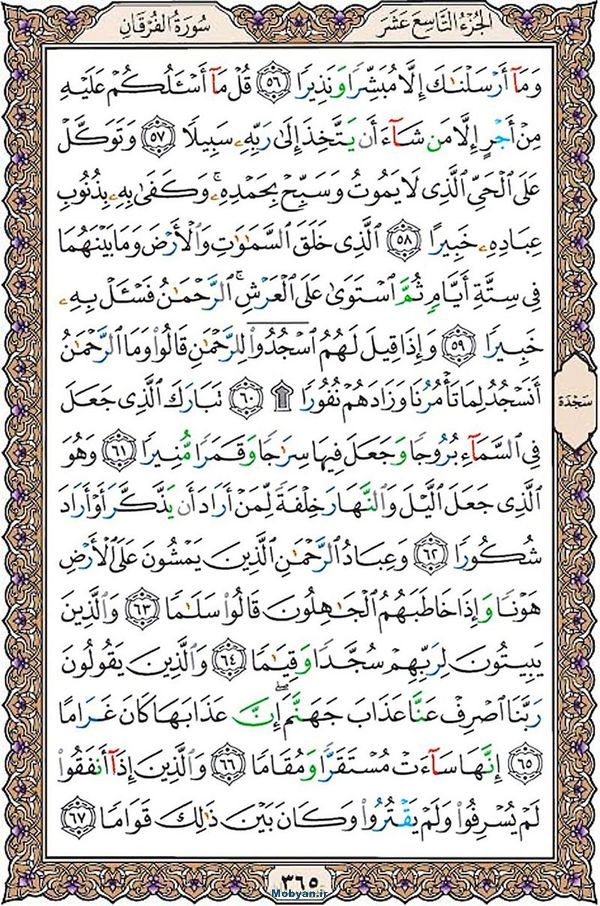 الجزء التاسع عشر
سورة الفرقان
وَمَآ أَرْسَلْنَـٰكَ إِلَّا مُبَشِّرًا وَنَذِيرًا ٥٦ قُلْ مَآ أَسْـَٔلُكُمْ عَلَيْهِ
مِنْ أَجْرٍ إِلَّا مَن شَآءَ أَن يَتَّخِذَ إِلَىٰ رَبِّهِۦ سَبِيلًا ٥٧ وَتَوَكَّلْ
عَلَى ٱلْحَىِّ ٱلَّذِى لَا يَمُوتُ وَسَبِّحْ بِحَمْدِهِۦ ۚ وَكَفَىٰ بِهِۦ بِذُنُوبِ
عِبَادِهِۦ خَبِيرًا ٥٨ ٱلَّذِى خَلَقَ ٱلسَّمَـٰوَٰتِ وَٱلْأَرْضَ وَمَا بَيْنَهُمَا
فِى سِتَّةِ أَيَّامٍ ثُمَّ ٱسْتَوَىٰ عَلَى ٱلْعَرْشِ ۚ ٱلرَّحْمَـٰنُ فَسْـَٔلْ بِهِۦ
خَبِيرًا ٥٩ وَإِذَا قِيلَ لَهُمُ ٱسْجُدُوا۟ لِلرَّحْمَـٰنِ قَالُوا۟ وَمَا ٱلرَّحْمَـٰنُ
أَنَسْجُدُ لِمَا تَأْمُرُنَا وَزَادَهُمْ نُفُورًا ۩ ٦٠ تَبَارَكَ ٱلَّذِى جَعَلَ
فِى ٱلسَّمَآءِ بُرُوجًا وَجَعَلَ فِيهَا سِرَٰجًا وَقَمَرًا مُّنِيرًا ٦١ وَهُوَ
ٱلَّذِى جَعَلَ ٱلَّيْلَ وَٱلنَّهَارَ خِلْفَةً لِّمَنْ أَرَادَ أَن يَذَّكَّرَ أَوْ أَرَادَ
شُكُورًا ٦٢ وَعِبَادُ ٱلرَّحْمَـٰنِ ٱلَّذِينَ يَمْشُونَ عَلَى ٱلْأَرْضِ
هَوْنًا وَإِذَا خَاطَبَهُمُ ٱلْجَـٰهِلُونَ قَالُوا۟ سَلَـٰمًا ٦٣ وَٱلَّذِينَ
يَبِيتُونَ لِرَبِّهِمْ سُجَّدًا وَقِيَـٰمًا ٦٤ وَٱلَّذِينَ يَقُولُونَ
رَبَّنَا ٱصْرِفْ عَنَّا عَذَابَ جَهَنَّمَ ۖ إِنَّ عَذَابَهَا كَانَ غَرَامًا
٦٥ إِنَّهَا سَآءَتْ مُسْتَقَرًّا وَمُقَامًا ٦٦ وَٱلَّذِينَ إِذَآ أَنفَقُوا۟
لَمْ يُسْرِفُوا۟ وَلَمْ يَقْتُرُوا۟ وَكَانَ بَيْنَ ذَٰلِكَ قَوَامًا ٦٧
سجدة
٣٦٥
Mobyan.ir